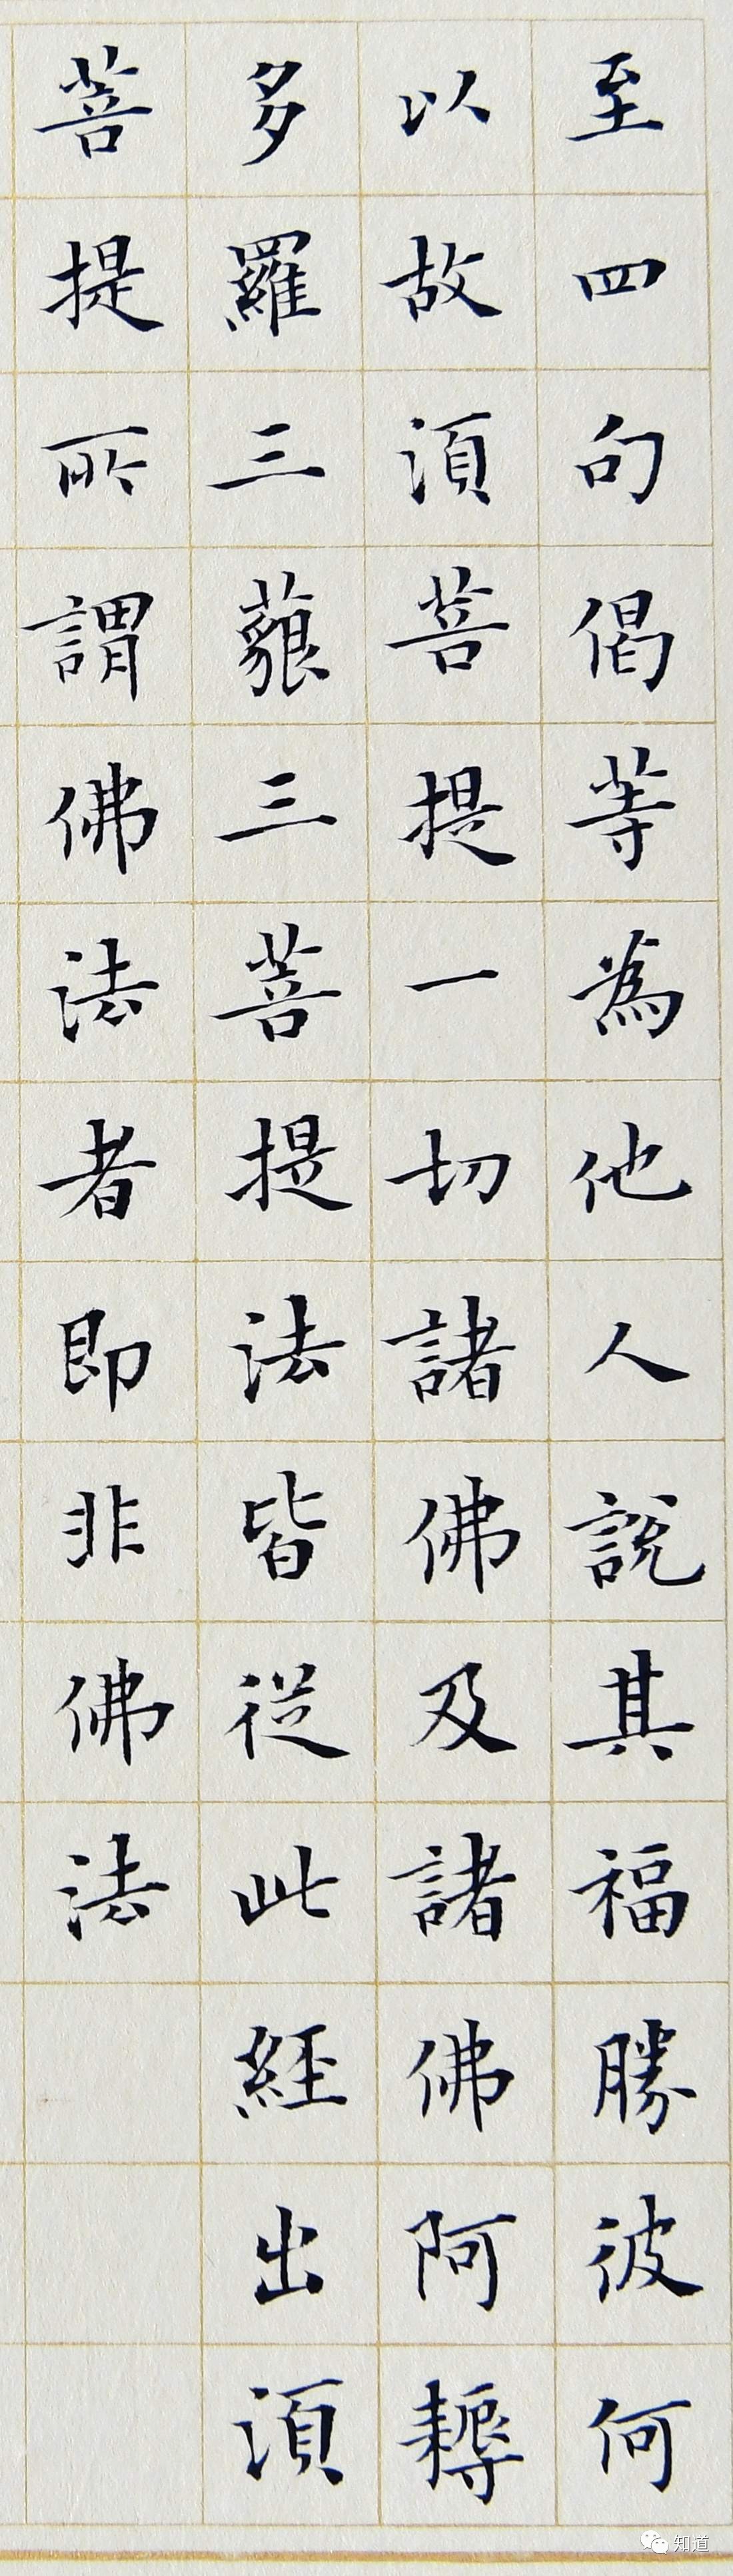 至四句偈等為他人說其福勝彼何
以故湏菩提一切諸佛及諸佛阿耨
多羅三藐三菩提法皆從此經出湏
菩提所謂佛法者即非佛法
知道